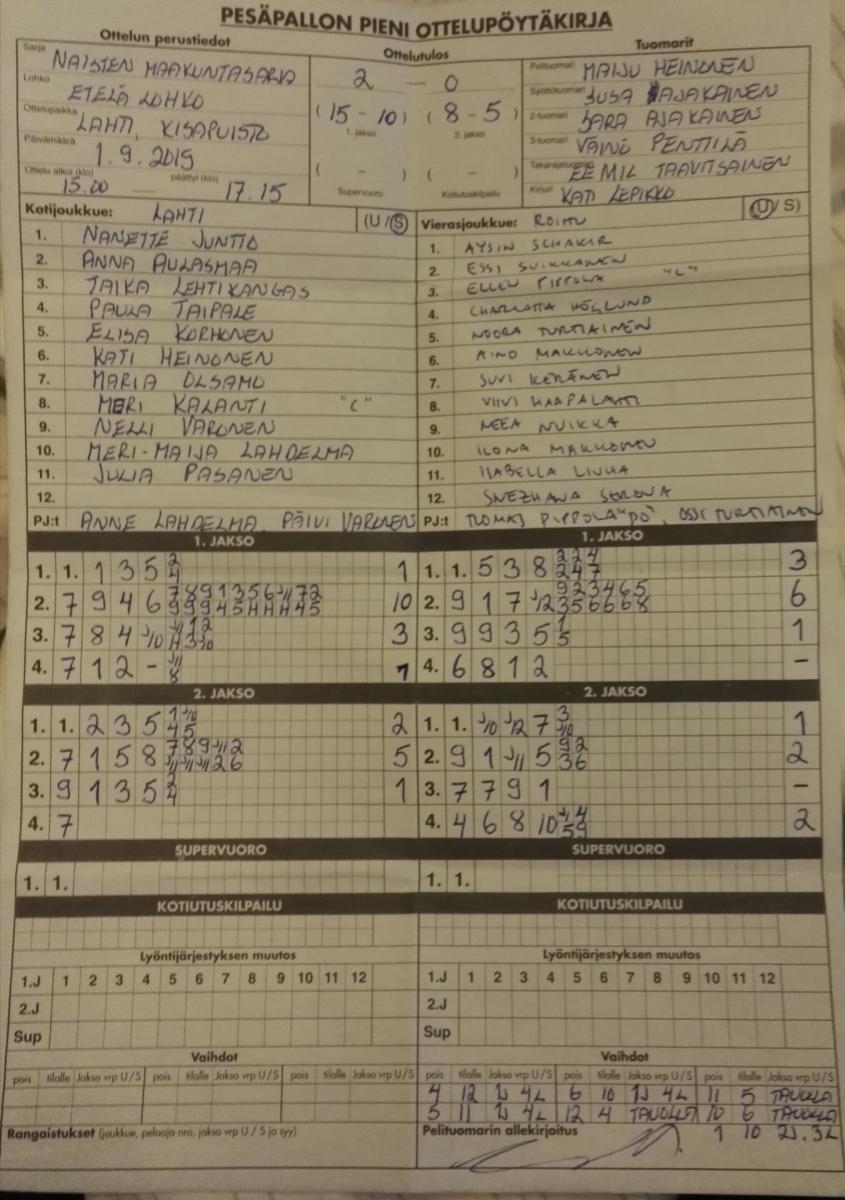 PESÄPALLON PIENI OTTELUPÖYTÄKIRJA
Ottelun perustiedot
Sarja NAISTEN MAAKUNTASARJA
Lohko ETELÄ LOHKO
Ottelupaikka LAHTI, KISAPUISTO
Päivämäärä 1.9.2019
Ottelu alkoi (klo) 15.00 — päättyi (klo) 17.15
Ottelutulos
2 — 0
(15 - 10) (8 - 5)
1. jakso 2. jakso
( - ) ( - )
Supervuoro Kotiutuskilpailu
Tuomarit
Pelituomari MAIJU HEINONEN
Syöttötuomari SUSA AJAKAINEN
2-tuomari SARA AJAKAINEN
3-tuomari VÄINÖ PENTTILÄ
Takarajatuomari EEMIL TAAVITSAINEN
Kirjuri KATI LEPIKKO
Kotijoukkue: LAHTI (U / S)
1. NANETTE JUNTTO
2. ANNA AULASMAA
3. TAIKA LEHTIKANGAS
4. PAULA TAIPALE
5. ELISA KORHONEN
6. KATI HEINONEN
7. MARIA OLSAMO
8. MERI KALANTI "C"
9. NELLI VARONEN
10. MERI-MAIJA LAHDELMA
11. JULIA PASANEN
12.
PJ:t ANNE LAHDELMA, PÄIVI VARONEN
Vierasjoukkue: ROIHU (U / S)
1. AYSIN SCHAKIR
2. ESSI SUIKKANEN
3. ELLEN PIPPOLA "C"
4. CHARLOTTA HÖGLUND
5. NOORA TURTIAINEN
6. AINO MAKKONEN
7. SUVI KERÄNEN
8. VIIVI HAAPALAHTI
9. NEEA NUIKKA
10. ILONA MAKKONEN
11. IISABELLA LIUHA
12. SNEZHANA SEROVA
PJ:t TUOMAS PIPPOLA "PÖ", OSSI TURTIAINEN
1. JAKSO
1. 1. 1 3 5 2 1
4
2. 7 9 4 6 10
3. 7 8 4 J/10 3
4. 7 1 2 - J/11 1
8
1. JAKSO
1. 1. 5 3 8 2 2 4 3
2 4 7
2. 9 1 7 J/12 9 2 3 4 6 5 6
3 5 6 6 6 8
3. 9 9 3 5 1 1
5
4. 6 8 1 2 –
2. JAKSO
1. 1. 2 3 5 1 J/10 2
4 5
2. 7 1 5 8 7 8 9 J/11 2 5
J/11 J/11 J/11 2 6
3. 9 1 3 5 2 1
4
4. 7
2. JAKSO
1. 1. J/10 J/12 7 3 1
J/10
2. 9 1 J/11 5 9 2 2
3 6
3. 7 7 9 1 –
4. 4 6 8 10 J/1 4 2
5 9
SUPERVUORO
1. 1.
SUPERVUORO
1. 1.
KOTIUTUSKILPAILU
KOTIUTUSKILPAILU
Lyöntijärjestyksen muutos
1.J 1 2 3 4 5 6 7 8 9 10 11 12
2.J
Sup
Lyöntijärjestyksen muutos
1.J 1 2 3 4 5 6 7 8 9 10 11 12
2.J
Sup
Vaihdot
pois tilalle Jakso vrp U/S pois tilalle Jakso vrp U/S pois tilalle Jakso vrp U/S
Vaihdot
pois tilalle Jakso vrp U/S pois tilalle Jakso vrp U/S pois tilalle Jakso vrp U/S
4 12 1J 4L 6 10 1J 4L 11 5 TAUOLLA
5 11 1J 4L 12 4 TAUOLLA 10 6 TAUOLLA
1 10 2J. 3L
Rangaistukset (joukkue, pelaaja nro, jakso vrp U / S ja syy)
Pelituomarin allekirjoitus